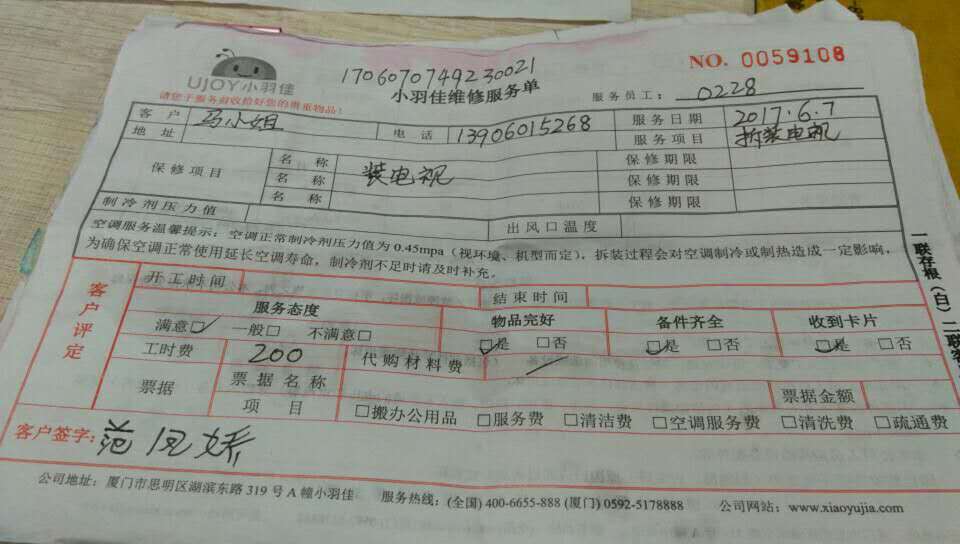 UJOY小羽佳
1706070749230021
NO. 0059108
小羽佳维修服务单
服务员工: 0228
请您于服务前收拾好您的贵重物品!
客户 马小姐 电话 13906015268 服务日期 2017.6.7
地址 服务项目 拆装电视
保修项目 名称 装电视 保修期限
名称 保修期限
名称 保修期限
制冷剂压力值 出风口温度
空调服务温馨提示: 空调正常制冷剂压力值为 0.45mpa (视环境、机型而定), 拆装过程会对空调制冷或制热造成一定影响,
为确保空调正常使用延长空调寿命, 制冷剂不足时请及时补充。
客户评定
开工时间 结束时间
服务态度 物品完好 备件齐全 收到卡片
满意☑ 一般□ 不满意□ ☑是 □否 ☑是 □否 ☑是 □否
工时费 200 代购材料费 /
票据 票据名称 票据金额
项目 □搬办公用品 □服务费 □清洁费 □空调服务费 □清洗费 □疏通费
客户签字: 范风娇
一联存根(白) 二联
公司地址: 厦门市思明区湖滨东路 319 号 A 幢小羽佳 服务热线: (全国) 400-6655-888 (厦门) 0592-5178888 公司网站: www.xiaoyujia.com